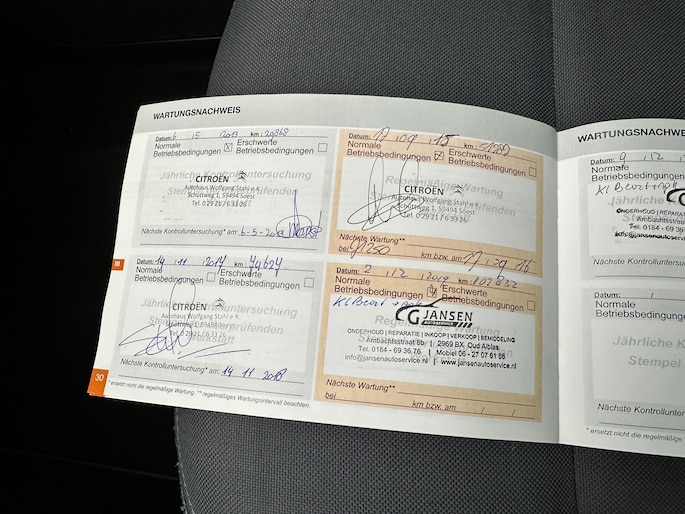 WARTUNGSNACHWEIS
Datum: 6 5 2013 km: 29368
Normale Betriebsbedingungen Erschwerte Betriebsbedingungen
Jährliche Kontrolluntersuchung
CITROËN
Autohaus Wolfgang Stahl e.K.
Schüttweg 1, 59494 Soest
Tel. 0 29 21 / 6 33 26
Nächste Kontrolluntersuchung* am: 6-5-
Datum: 17 09 15 km:
Normale Betriebsbedingungen Erschwerte Betriebsbedingungen
Regelmäßige Wartung
CITROËN
Autohaus Wolfgang Stahl e.K.
Schüttweg 1, 59494 Soest
Tel. 0 29 21 / 6 33 26
Nächste Wartung**
bei km bzw. am 17 09 16
Datum: 14 11 2017 km: 74624
Normale Betriebsbedingungen Erschwerte Betriebsbedingungen
CITROËN
Autohaus Wolfgang Stahl e.K.
Schüttweg 1, 59494 Soest
Tel. 0 29 21 / 6 33 26
Nächste Kontrolluntersuchung* am: 14 11 2018
Datum: 2 12 2019 km: 107832
Normale Betriebsbedingungen Erschwerte Betriebsbedingungen
Kl Beurt +
CG JANSEN
AUTOSERVICE
ONDERHOUD | REPARATIE | INKOOP | VERKOOP | BEMIDDELING
Ambachtsstraat 8b | 2969 BX Oud Alblas
Tel. 0184 - 69 36 76 | Mobiel 06 - 27 07 61 86
info@jansenautoservice.nl | www.jansenautoservice.nl
Nächste Wartung**
bei km bzw. am / /
30
* ersetzt nicht die regelmäßige Wartung. ** regelmäßiges Wartungsintervall beachten.
WARTUNGSNACHWE
Datum: 9 12
Normale Betriebsbedingungen
Kl Beurt +
ONDERHOUD | REPARA
Ambachtsstraat
Tel. 0184 - 69 36
info@jansenautoservice
Nächste Kontrollunter
Datum: /
Normale Betriebsbedingungen
Jährliche K
Stempel
Nächste Kontrollunter
* ersetzt nicht die regelmäßige